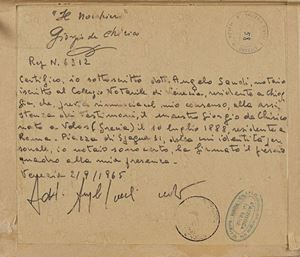 "Il Nocchiero"
Giorgio de Chirico
Rep N. 6312
Certifico io sottoscritto dott. Angelo Sandi, notaio
iscritto al Collegio Notarile di Venezia, residente a Chiog
gia, che, previa rinuncia col mio consenso, alla assi
stenza dei testimoni, il maestro Giorgio de Chirico
nato a Volos (Grecia) il 10 luglio 1888, residente a
Roma, Piazza di Spagna 31, della cui identità per
sonale, io notaio sono certo, ha firmato il presente
quadro alla mia presenza.
Venezia 21/9/1965